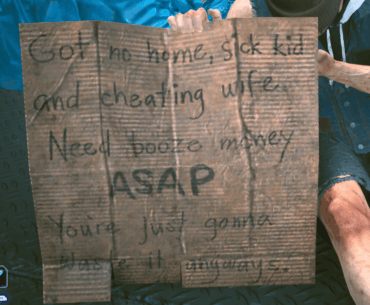 Got no home, sick kid
and cheating wife.
Need booze money
ASAP
You're just gonna
waste it anyways.